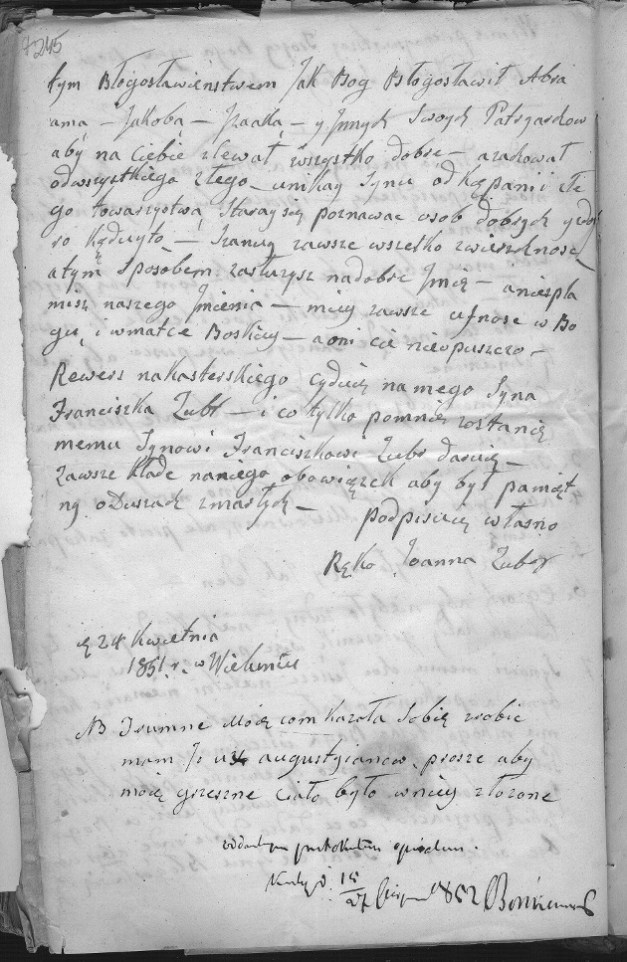 245
tym Błogosławieństwem Jak Bog Błogosławił Abra
ama – Jakoba – Jzaaka – y Jnnych Swoych Patryardow
aby na Ciebie zlewał wszystko dobre – a zachował
odwszystkiego złego – unikay Synu od kąpanii złe
go towarzystwa Staray się poznawac osob dobrych y
– Szanuy zawsze wszelko zwierzchnosc
atym Sposobem zasłuzysz nadobre Jmię – aniespla
misz naszego Jmienia – miey zawsze ufnosc w Bo
gu i wmatce Boskiey – a oni cie nieopuszczo –
Rewers nakasterskiego cyduię na mego Syna
Franciszka Zubr – i co tylko pomnie zostanie
memu Synowi Franciszkowi Zubr daruię –
zawsze kłade naniego obowięzek aby był pamięt
ny oDuszach zmarłych – podpisuię własno
Ręko Joanna Zubr
24 Kwietnia
1851 r. w Wieluniu
NB Trumne Moię com kazała Sobie zrobic
mam Jo u augustyianow prosze aby
moie grzeszne Ciało było wniey złozone
15
27 1852